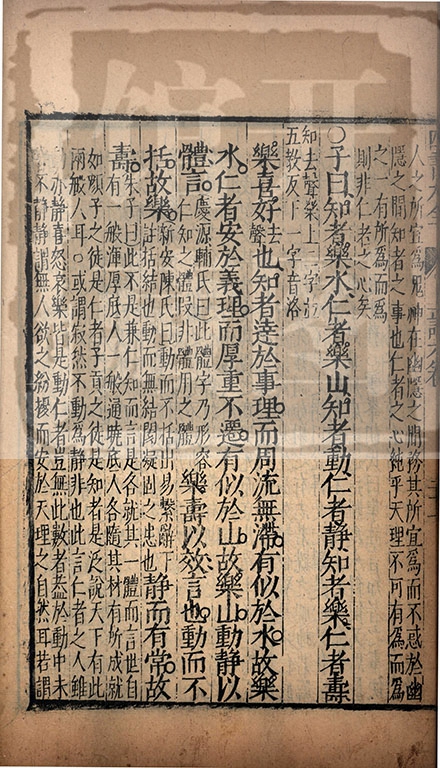 人之所宜為鬼神在幽隱之間務其所宜為而不惑於幽
隱之間知者之事也仁者之心純乎天理不可有為而為
之一有所為而為
則非仁者之心矣
○子曰知者樂水仁者樂山知者動仁者靜知者樂仁者壽
知去聲樂上二字並
五教反下一字音洛
樂喜好去聲也知者達於事理而周流無滯有似於水故樂
水仁者安於義理而厚重不遷有似於山故樂山動靜以
體言慶源輔氏曰此體字乃形容仁知之體段非體用之體樂壽以效言也動而不
括故樂新安陳氏曰動而不括出易繫辭下註括結也動而無結閡凝固之患也靜而有常故
壽朱子曰此不是兼仁知而言是各就其一體而言世自
有一般渾厚底人一般通曉底人各隨其材有所成就
如顏子之徒是仁者子貢之徒是知者是泛說天下有此
兩般人耳○或謂寂然不動為靜非也此言仁者之人雖
動亦靜喜怒哀樂皆是動仁者豈無此數者蓋於動中未
不靜靜謂無人欲之紛擾而安於天理之自然耳若謂